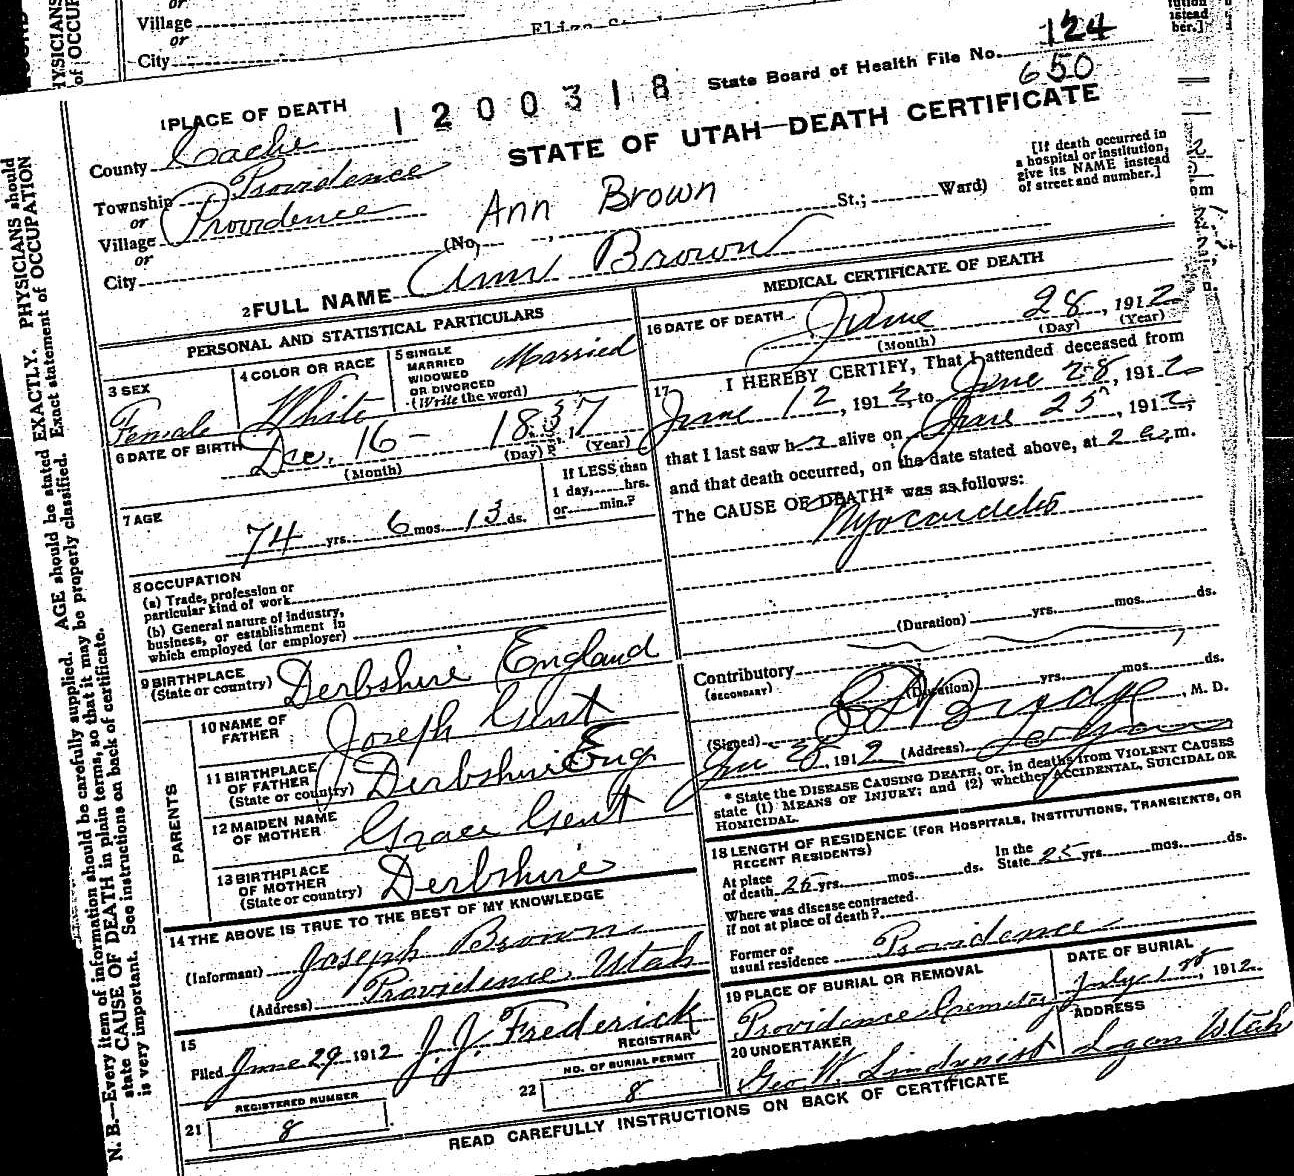 Village
or
City
1 2 0 0 3 1 8
State Board of Health File No. 124
650
1 PLACE OF DEATH
STATE OF UTAH—DEATH CERTIFICATE
County Cache
Township Providence
or
Village Providence
or
City
Ann Brown
(No. , St.; Ward)
[If death occurred in
a hospital or institution,
give its NAME instead
of street and number.]
2 FULL NAME Ann Brown
PERSONAL AND STATISTICAL PARTICULARS
3 SEX
Female
4 COLOR OR RACE
White
5 SINGLE
MARRIED
WIDOWED
OR DIVORCED
(Write the word)
Married
6 DATE OF BIRTH
Dec. 16 - 1837
(Month) (Day) (Year)
7 AGE
74 yrs. 6 mos. 13 ds.
If LESS than
1 day, hrs.
or min.?
8 OCCUPATION
(a) Trade, profession or
particular kind of work
(b) General nature of industry,
business, or establishment in
which employed (or employer)
9 BIRTHPLACE
(State or country) Derbshire England
PARENTS
10 NAME OF
FATHER Joseph Gent
11 BIRTHPLACE
OF FATHER
(State or country) Derbshire Eng
12 MAIDEN NAME
OF MOTHER Grace Gent
13 BIRTHPLACE
OF MOTHER
(State or country) Derbshire
14 THE ABOVE IS TRUE TO THE BEST OF MY KNOWLEDGE
(Informant) Joseph Brown
(Address) Providence Utah
15
Filed June 29 1912 J. J. Frederick
REGISTRAR
REGISTERED NUMBER
21 8
NO. OF BURIAL PERMIT
22 8
MEDICAL CERTIFICATE OF DEATH
16 DATE OF DEATH
June 28, 1912
(Month) (Day) (Year)
17 I HEREBY CERTIFY, That I attended deceased from
June 12, 1912, to June 28, 1912
that I last saw her alive on June 25, 1912,
and that death occurred, on the date stated above, at 2 a. m.
The CAUSE OF DEATH* was as follows:
Myocardetis
(Duration) yrs. mos. ds.
Contributory
(SECONDARY)
(Duration) yrs. mos. ds.
(Signed) Budge, M. D.
28, 1912 (Address) Logan
* State the DISEASE CAUSING DEATH, or, in deaths from VIOLENT CAUSES
state (1) MEANS OF INJURY; and (2) whether ACCIDENTAL, SUICIDAL OR
HOMICIDAL.
18 LENGTH OF RESIDENCE (FOR HOSPITALS, INSTITUTIONS, TRANSIENTS, OR
RECENT RESIDENTS)
At place
of death 25 yrs. mos. ds.
In the
State 25 yrs. mos. ds.
Where was disease contracted
if not at place of death?
Former or
usual residence Providence
19 PLACE OF BURIAL OR REMOVAL
Providence Cemetery
DATE OF BURIAL
July 1st, 1912
20 UNDERTAKER
Geo W. Lindquist
ADDRESS
Logan Utah
READ CAREFULLY INSTRUCTIONS ON BACK OF CERTIFICATE
N. B.—Every item of information should be carefully supplied. AGE should be stated EXACTLY. PHYSICIANS should
state CAUSE OF DEATH in plain terms, so that it may be properly classified. Exact statement of OCCUPATION
is very important. See instructions on back of certificate.